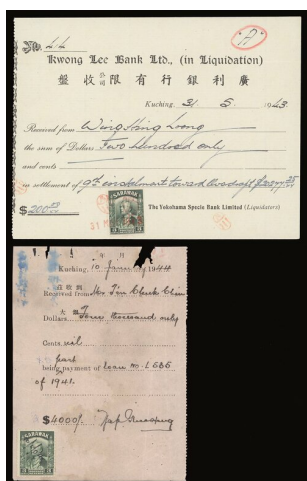 No. 44
Kwong Lee Bank Ltd., (in Liquidation)
盤收公司限有行銀利廣
Kuching, 31 5 1943
Received from Wing Hing Loong
the sum of Dollars Two hundred only
and cents
in settlement of 9th instalment toward
The Yokohama Specie Bank Limited (Liquidators)
$ 200.00
SARAWAK
年 月
Kuching, 10 June 1944
茲收到
Received from Mr. Tin Chuck Chin
大洋
Dollars Four thousand only
Cents nil
part
being payment of loan no. L636
of 1941.
$4000/-
SARAWAK